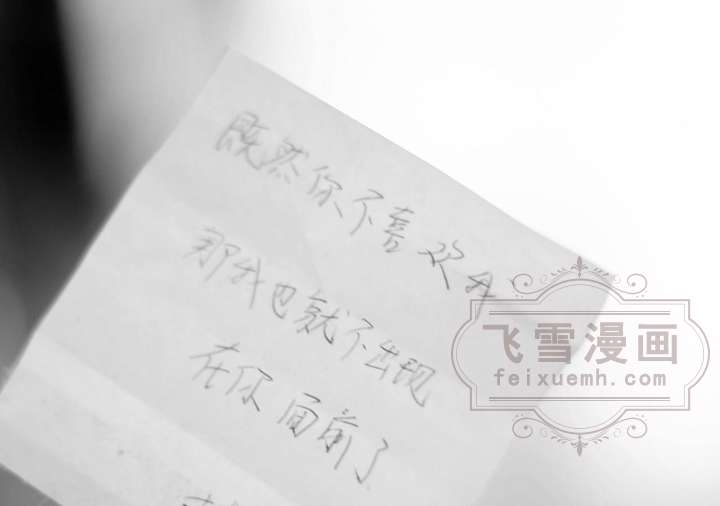 既然你不喜欢我
那我也就不出现
在你面前了
飞雪漫画
feixuemh.com